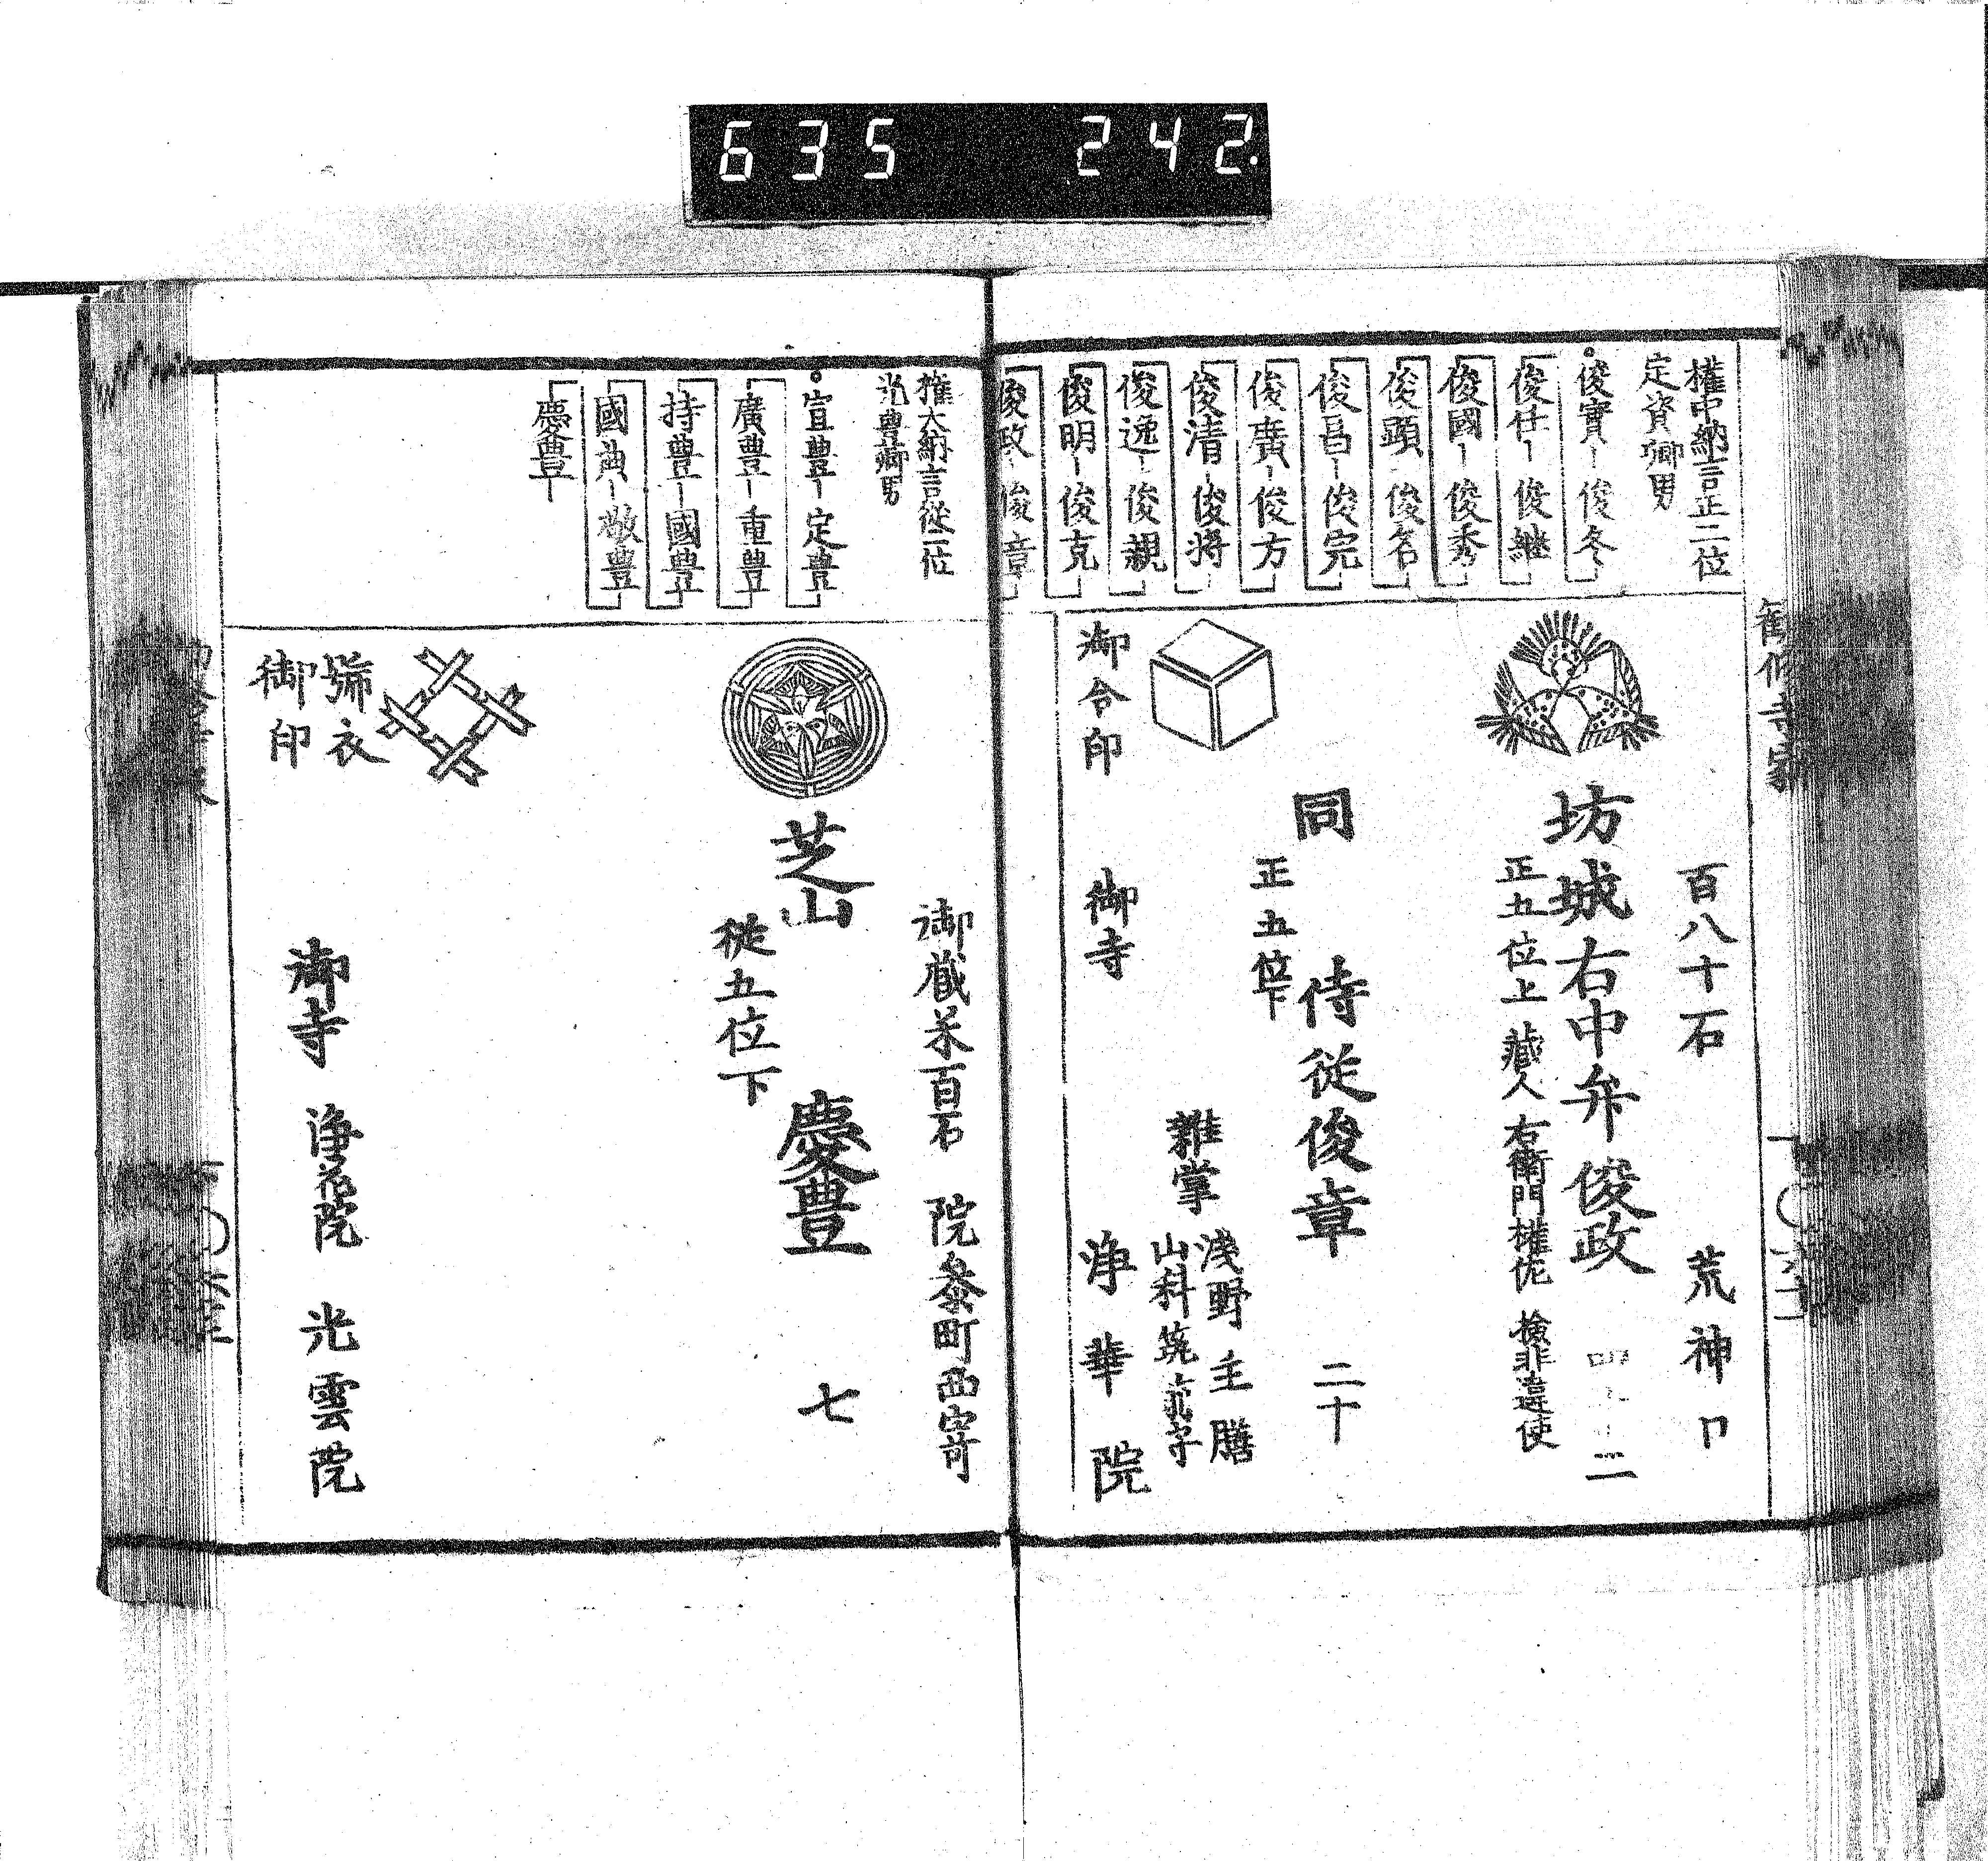 635 242
勧修寺家
權中納言正二位
定資卿男
俊實 俊冬
俊任 俊継
俊國 俊秀
俊顕 俊名
俊昌 俊完
俊廣 俊方
俊清 俊將
俊逸 俊親
俊明 俊克
俊政 俊章
百八十石 荒神口
坊城右中弁俊政
正五位上 藏人 右衛門權佐 檢非違使
同 侍從俊章 二十
正五位下
雜掌 淺野主膳
山科筑前守
御合印
御寺 淨華院
權大納言從一位
光豊卿男
宣豊 定豊
廣豊 重豊
持豊 國豊
國典 敬豊
慶豊
御藏米百石 院參町西寄
芝山 慶豊 七
從五位下
號衣
御印
御寺 淨花院 光雲院